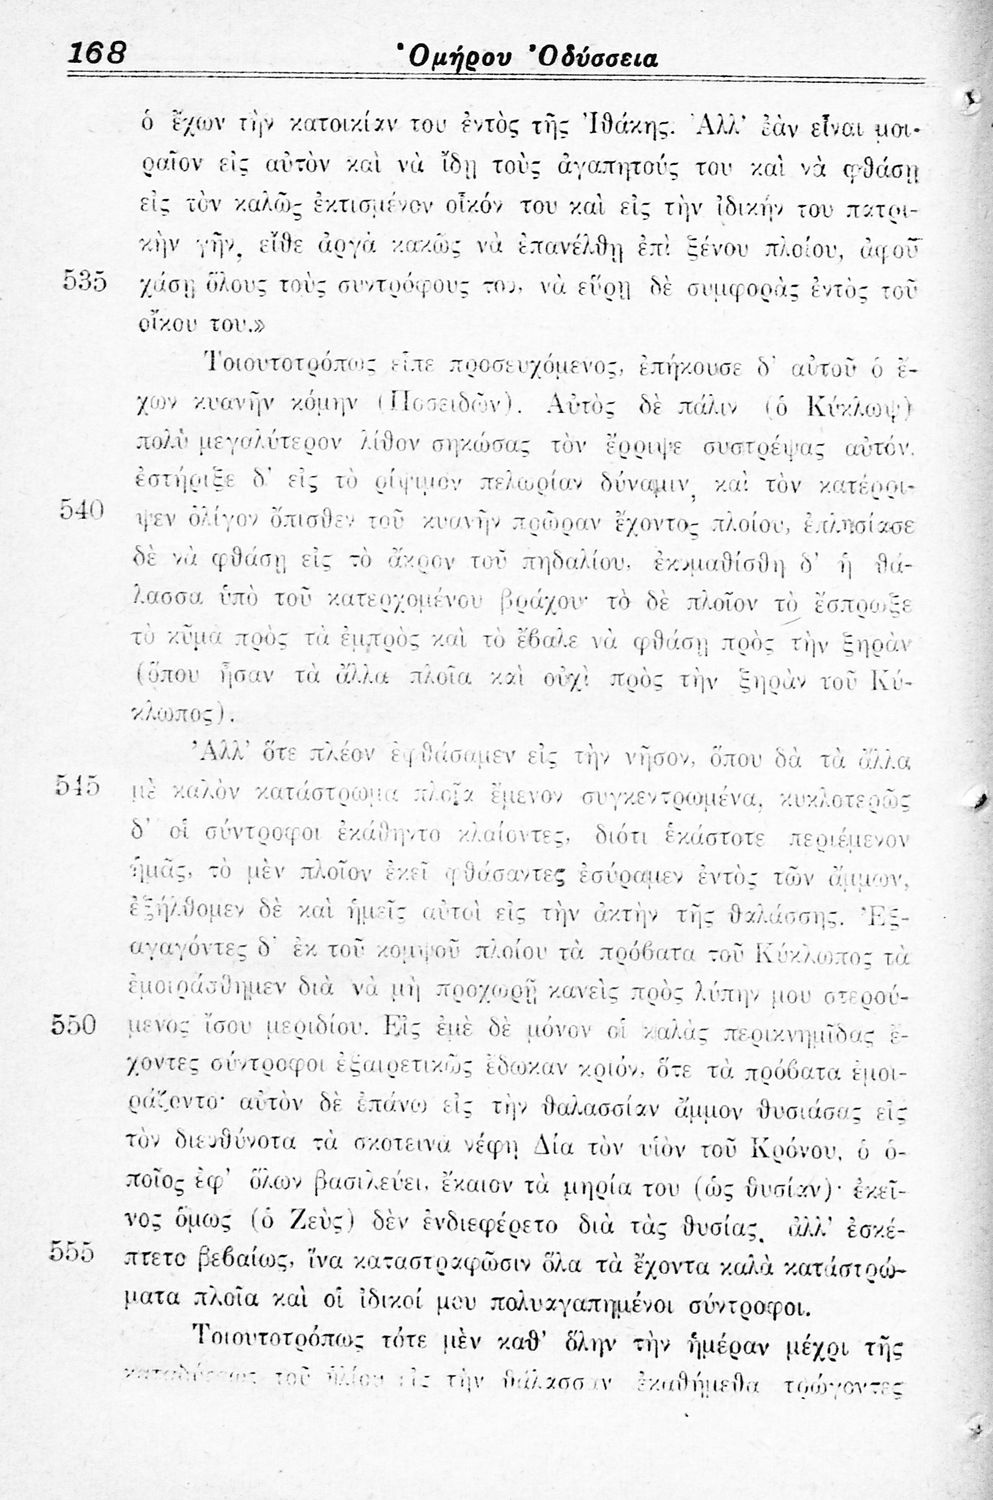 168
Ὁμήρου Ὀδύσσεια
ὁ ἔχων τὴν κατοικίαν του ἐντὸς τῆς Ἰθάκης. Ἀλλ' ἐὰν εἶναι μοι-
ραῖον εἰς αὐτὸν καὶ νὰ ἴδῃ τοὺς ἀγαπητούς του καὶ νὰ φθάσῃ
εἰς τὸν καλῶς ἐκτισμένον οἶκόν του καὶ εἰς τὴν ἰδικήν του πατρι-
κὴν γῆν, εἴθε ἀργὰ κακῶς νὰ ἐπανέλθῃ ἐπὶ ξένου πλοίου, ἀφοῦ
535 χάσῃ ὅλους τοὺς συντρόφους του, νὰ εὕρῃ δὲ συμφορὰς ἐντὸς τοῦ
οἴκου του.»
Τοιουτοτρόπως εἶπε προσευχόμενος, ἐπήκουσε δ' αὐτοῦ ὁ ἔ-
χων κυανῆν κόμην (Ποσειδῶν). Αὐτὸς δὲ πάλιν (ὁ Κύκλωψ)
πολὺ μεγαλύτερον λίθον σηκώσας τὸν ἔρριψε συστρέψας αὐτόν,
ἐστήριξε δ' εἰς τὸ ρίψιμον πελωρίαν δύναμιν, καὶ τὸν κατέρρι-
540 ψεν ὀλίγον ὄπισθεν τοῦ κυανῆν πρῶραν ἔχοντος πλοίου, ἐπλησίασε
δὲ νὰ φθάσῃ εἰς τὸ ἄκρον τοῦ πηδαλίου, ἐκυμαθίσθη δ' ἡ θά-
λασσα ὑπὸ τοῦ κατερχομένου βράχου· τὸ δὲ πλοῖον τὸ ἔσπρωξε
τὸ κῦμα πρὸς τὰ ἐμπρὸς καὶ τὸ ἔβαλε νὰ φθάσῃ πρὸς τὴν ξηρὰν
(ὅπου ἦσαν τὰ ἄλλα πλοῖα καὶ οὐχὶ πρὸς τὴν ξηρὰν τοῦ Κύ-
κλωπος).
Ἀλλ' ὅτε πλέον ἐφθάσαμεν εἰς τὴν νῆσον, ὅπου δὰ τὰ ἄλλα
545 μὲ καλὸν κατάστρωμα πλοῖα ἔμενον συγκεντρωμένα, κυκλοτερῶς
δ' οἱ σύντροφοι ἐκάθηντο κλαίοντες, διότι ἑκάστοτε περιέμενον
ἡμᾶς, τὸ μὲν πλοῖον ἐκεῖ φθάσαντες ἐσύραμεν ἐντὸς τῶν ἄμμων,
ἐξήλθομεν δὲ καὶ ἡμεῖς αὐτοὶ εἰς τὴν ἀκτὴν τῆς θαλάσσης. Ἐξ-
αγαγόντες δ' ἐκ τοῦ κομψοῦ πλοίου τὰ πρόβατα τοῦ Κύκλωπος τὰ
ἐμοιράσθημεν διὰ νὰ μὴ προχωρῇ κανεὶς πρὸς λύπην μου στερού-
550 μενος ἴσου μεριδίου. Εἰς ἐμὲ δὲ μόνον οἱ καλὰς περικνημῖδας ἔ-
χοντες σύντροφοι ἐξαιρετικῶς ἔδωκαν κριόν, ὅτε τὰ πρόβατα ἐμοι-
ράζοντο· αὐτὸν δὲ ἐπάνω εἰς τὴν θαλασσίαν ἄμμον θυσιάσας εἰς
τὸν διευθύνοτα τὰ σκοτεινὰ νέφη Δία τὸν υἱὸν τοῦ Κρόνου, ὁ ὁ-
ποῖος ἐφ' ὅλων βασιλεύει, ἔκαιον τὰ μηρία του (ὡς θυσίαν)· ἐκεῖ-
νος ὅμως (ὁ Ζεὺς) δὲν ἐνδιεφέρετο διὰ τὰς θυσίας, ἀλλ' ἐσκέ-
555 πτετο βεβαίως, ἵνα καταστραφῶσιν ὅλα τὰ ἔχοντα καλὰ κατάστρώ-
ματα πλοῖα καὶ οἱ ἰδικοί μου πολυαγαπημένοι σύντροφοι.
Τοιουτοτρόπως τότε μὲν καθ' ὅλην τὴν ἡμέραν μέχρι τῆς
καταδύσεως τοῦ ἡλίου εἰς τὴν θάλασσαν ἐκαθήμεθα τρώγοντες